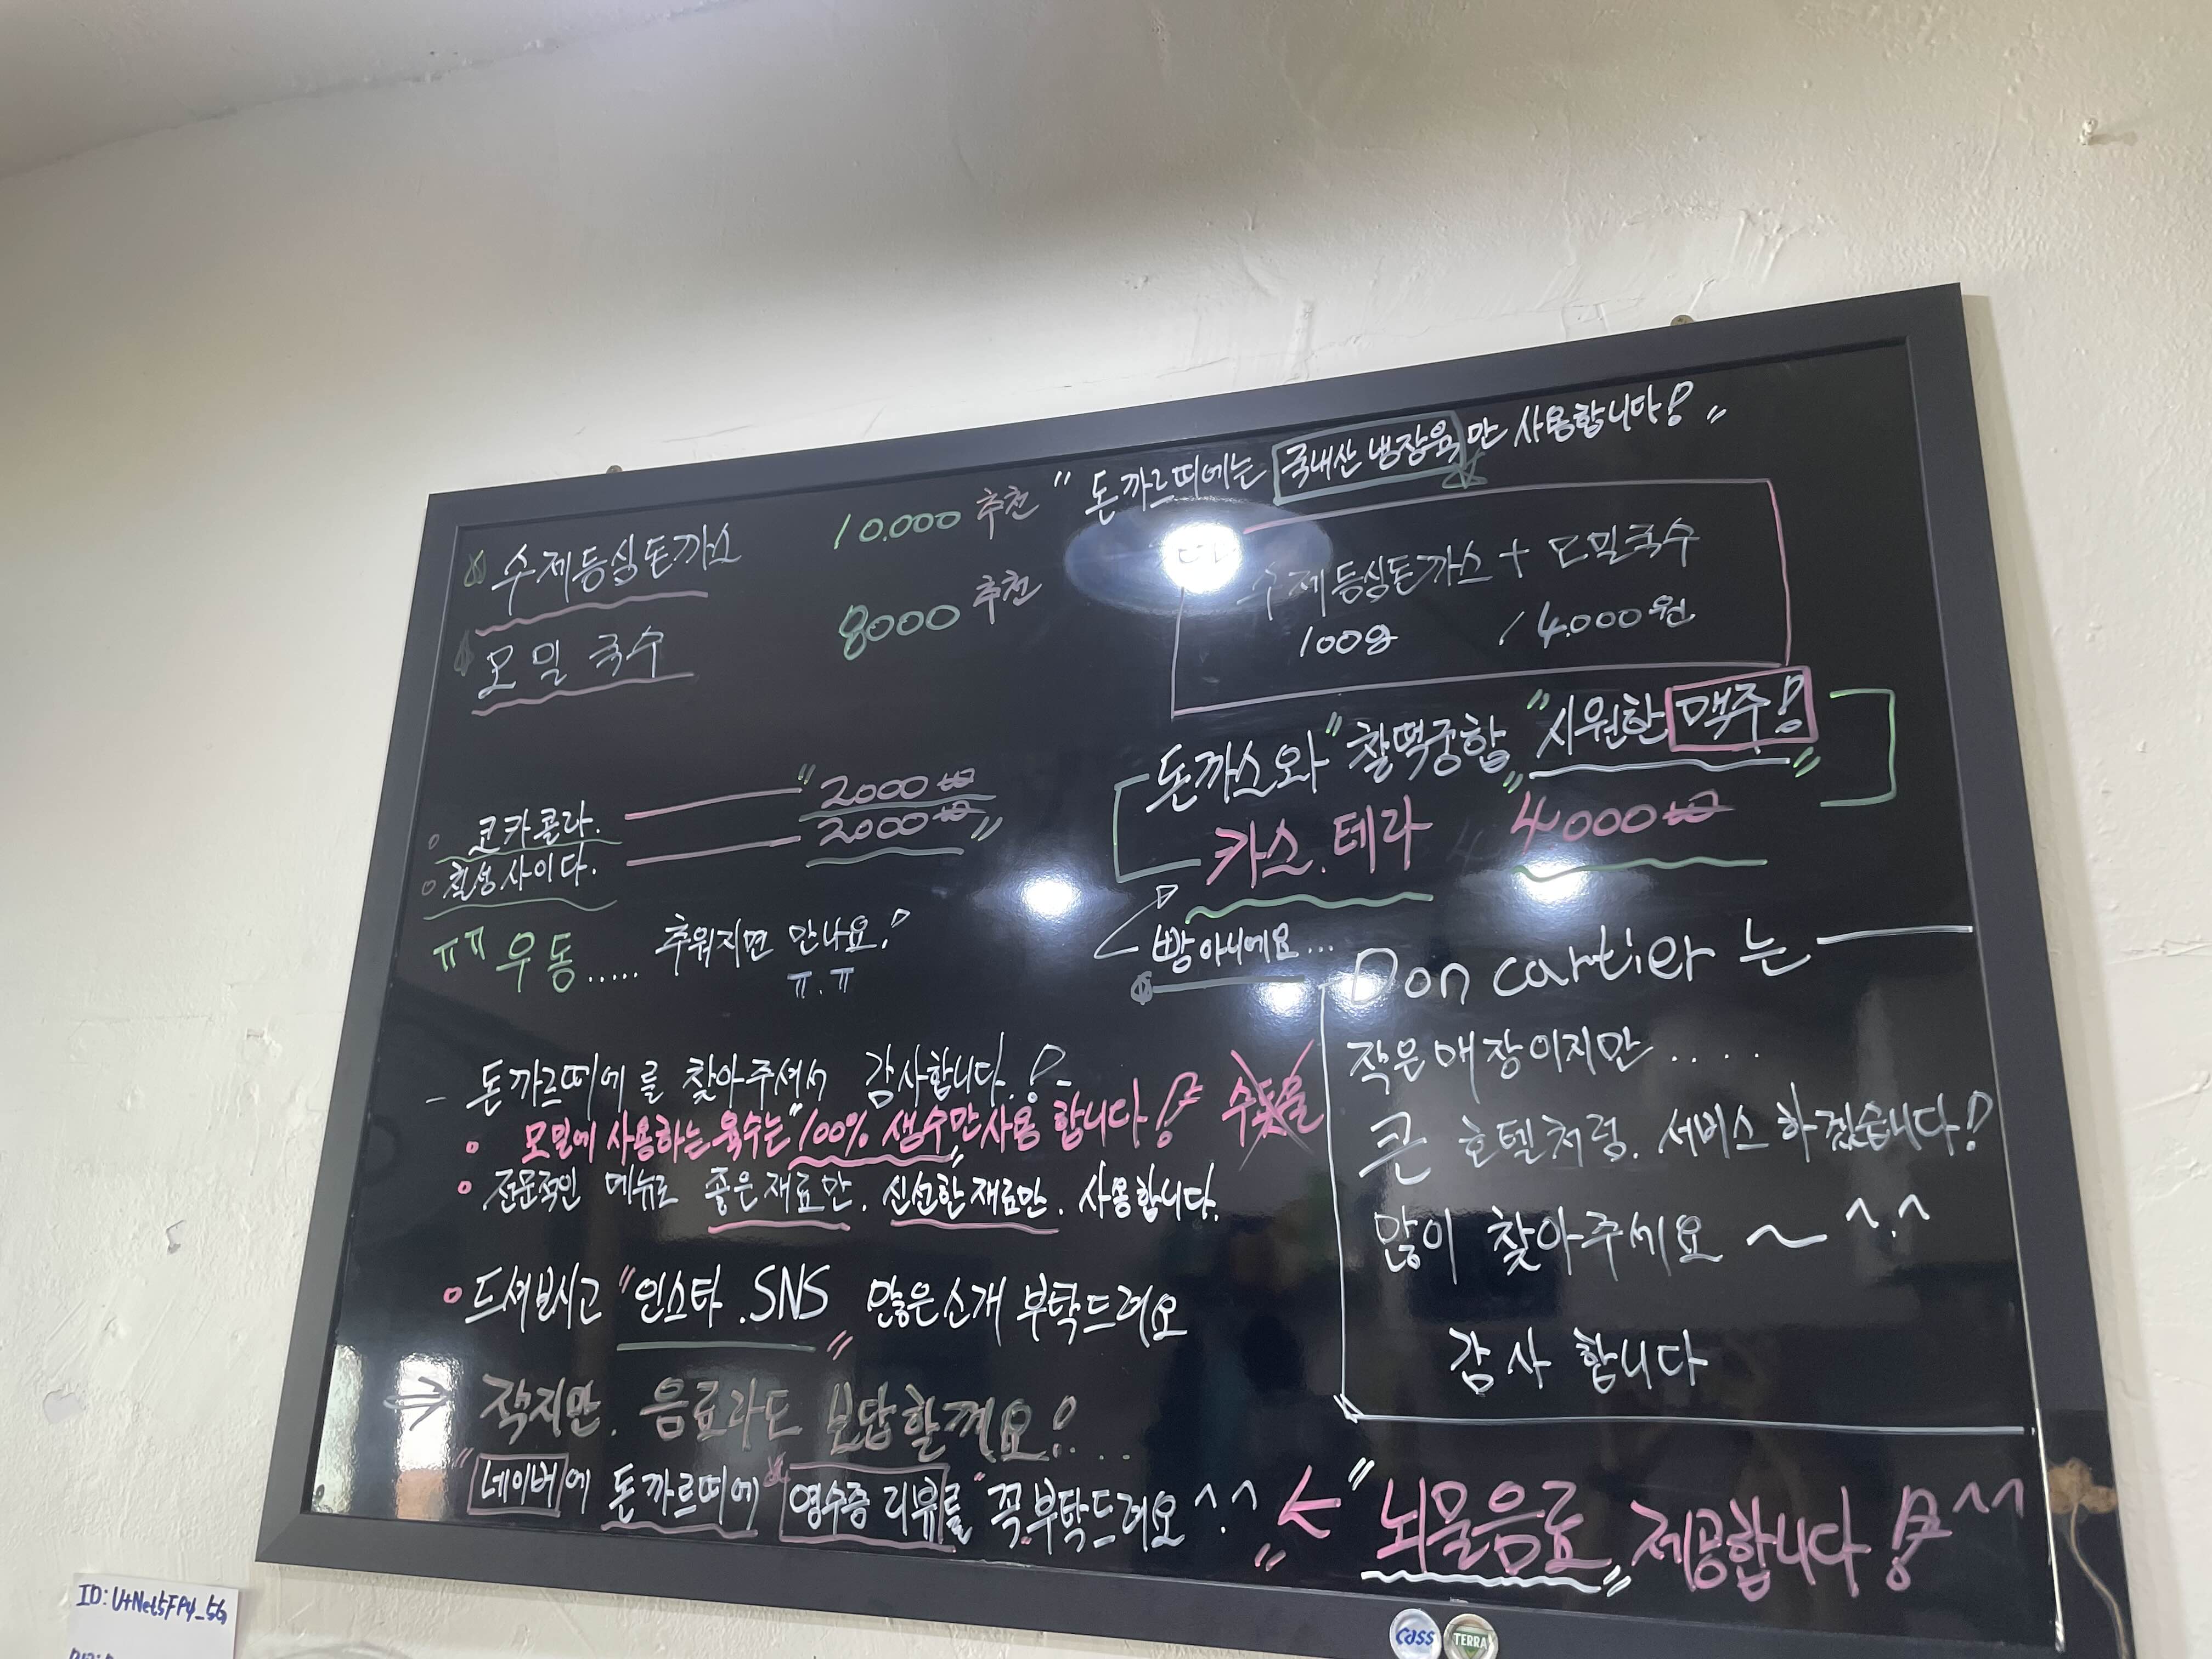 " 돈까르띠에는 국내산 냉장육만 사용합니다! "
수제등심돈까스 10.000 추천
모밀국수 8000 추천
수제등심돈까스 + 모밀국수
100g 14.000원
돈까스와 "찰떡궁합" "시원한 맥주!"
카스.테라 4000₩
빵아니에요...
코카콜라. "2000₩
칠성사이다. 2000₩"
ㅠㅠ 우동...... 추워지면 만나요!
ㅠ.ㅠ
Don cartier 는
작은매장이지만....
큰 호텔처럼. 서비스 하겠습니다!
많이 찾아주세요 ~ ^.^
감사 합니다
- 돈까르띠에를 찾아주셔서 감사합니다.! -
모밀에 사용하는 육수는 "100% 생수만" 사용 합니다! 수돗물
전문적인 메뉴로 좋은재료만. 신선한재료만. 사용합니다.
드셔보시고 "인스타.SNS" 많은소개 부탁드려요
⇒ 작지만. 음료라도 보답할께요!...
"네이버에 돈까르띠에 영수증 리뷰를 "꼭부탁드려요^.^"
< "뇌물음료" 제공합니다! ^^
cass
TERRA